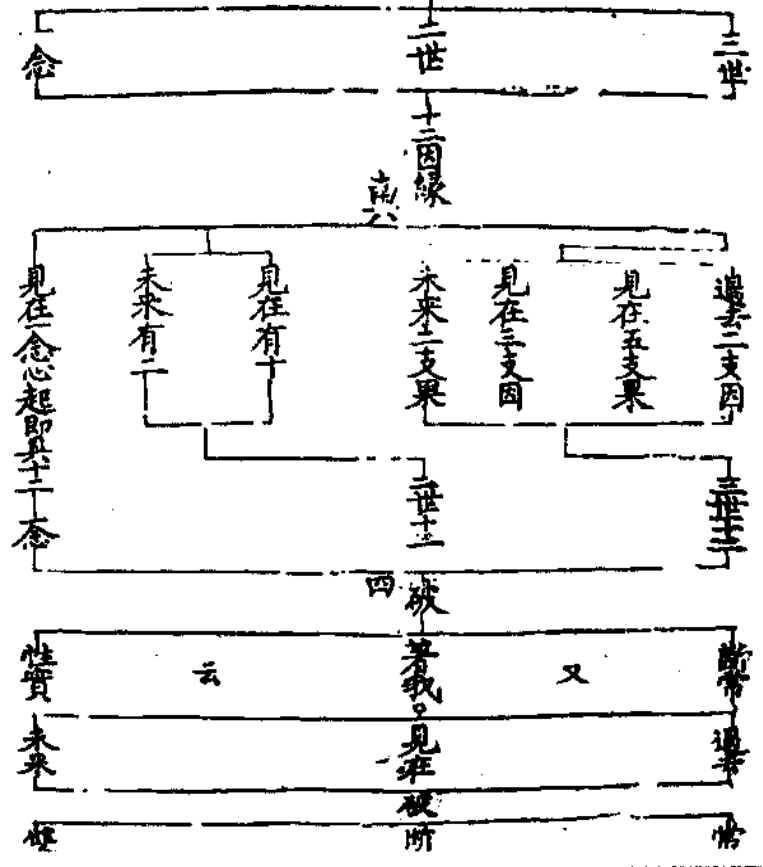 三世
二世
一念
十二因緣
過去二支因
見在五支果
見在三支因
未來二支果
見在有十
未來有二
見在一念心起即具十二
一念
二世十二
三世十二
四
破
斷常
又
著我
云
性實
過去
見在
未來
破
常
斷